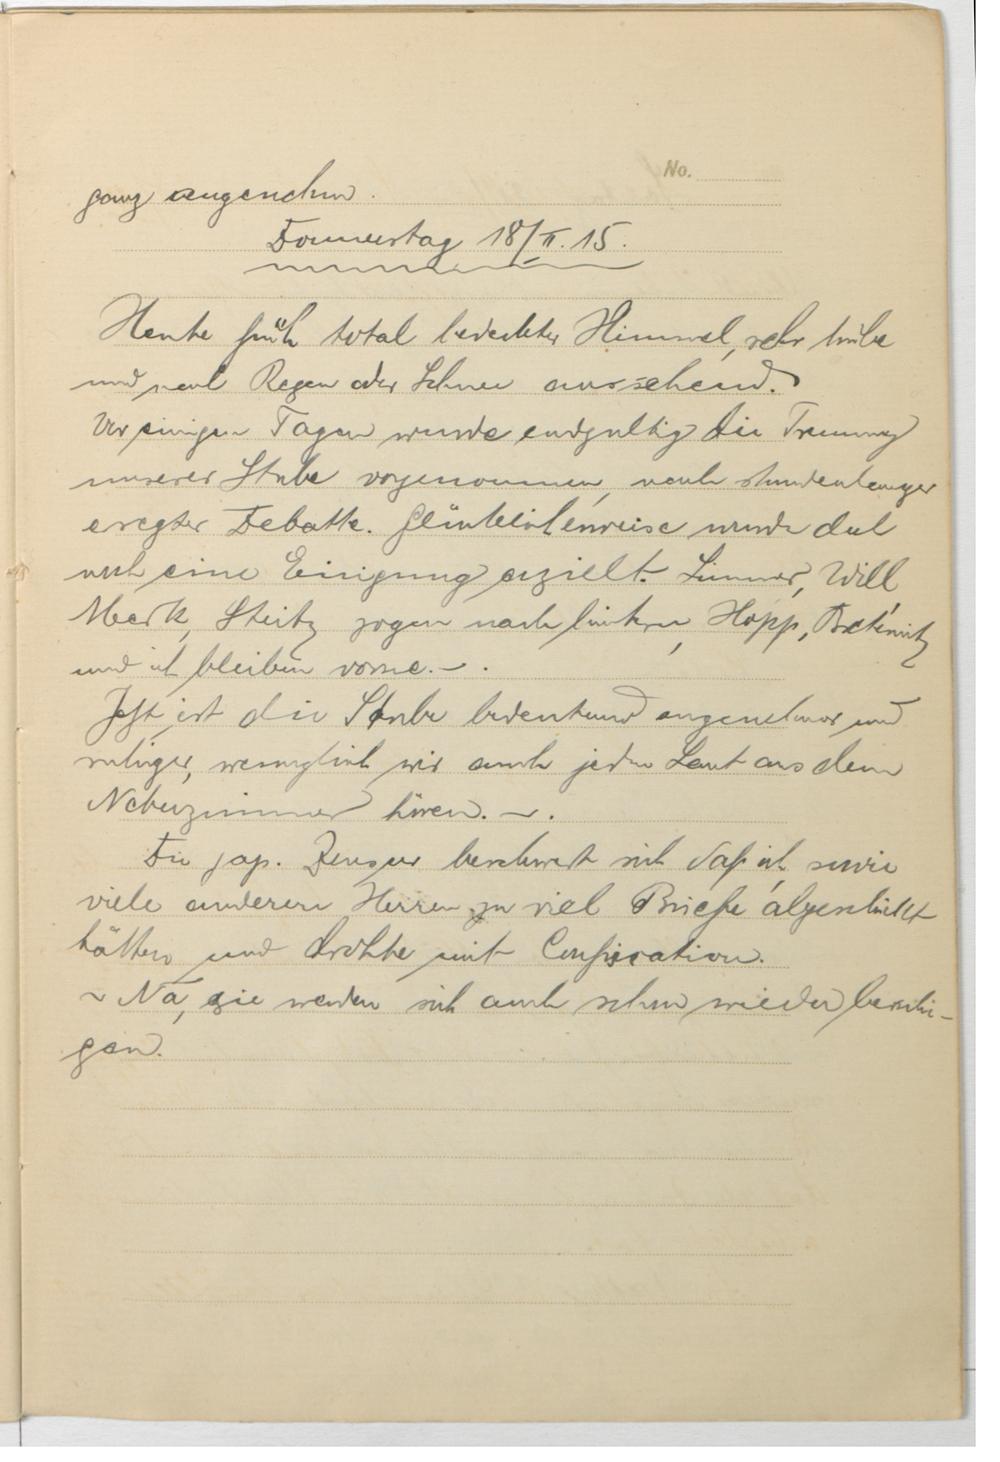 No.
ganz angenehm.
Donnerstag 18/II. 15.
Heute früh total bedeckter Himmel, sehr trübe
und nach Regen oder Schnee aussehend.
Vor einigen Tagen wurde endgültig die Trennung
unserer Stube vorgenommen, nach stundenlanger
erregter Debatte. Glücklicherweise wurde doch
noch eine Einigung erzielt. Simmer, Will,
Merk, Steitz zogen nach hinten, Hopp,
und ich bleiben vorne. - .
Jetzt ist die Stube bedeutend angenehmer und
ruhiger, wenngleich wir auch jeden Laut aus dem
Nebenzimmer hören. - .
Die jap. Zensur beschwert sich daß ich, sowie
viele anderen Herren zu viel Briefe abgeschickt
hätten und drohte mit Confiscation.
~ Na, sie werden sich auch schon wieder beruhi-
gen.